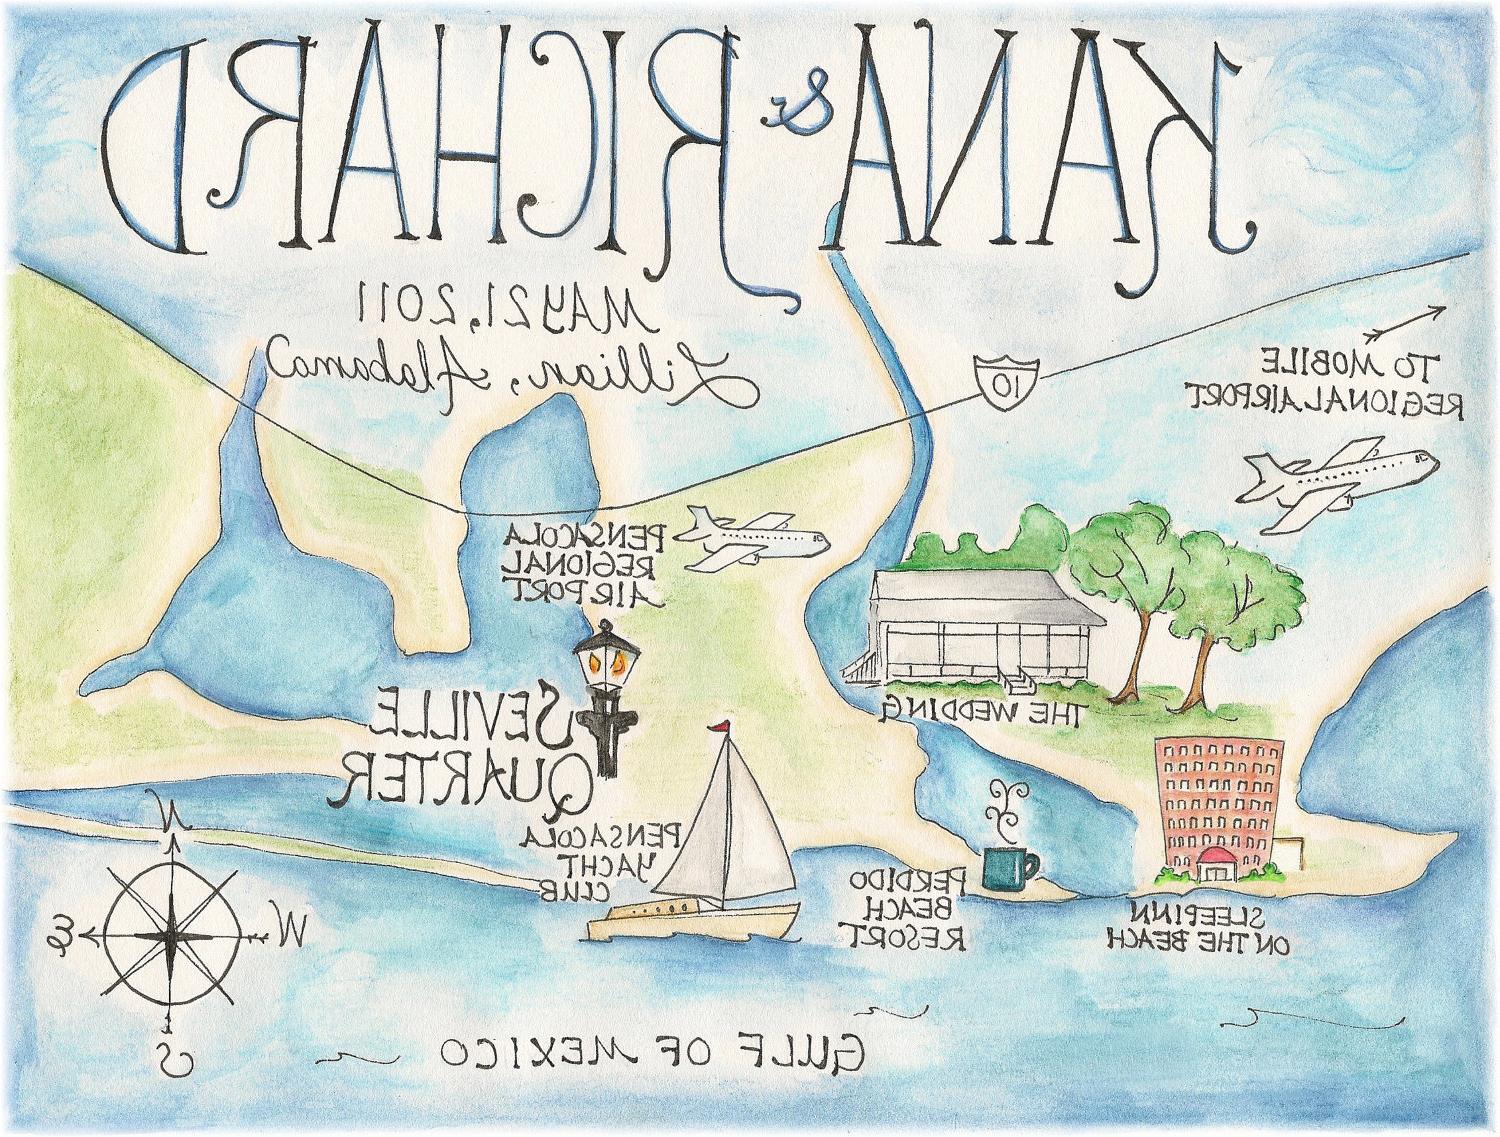 KANA & RICHARD
MAY 21, 2011
Lillian, Alabama
10
TO MOBILE
REGIONAL AIRPORT
PENSACOLA
REGIONAL
AIRPORT
THE WEDDING
SEVILLE
QUARTER
PENSACOLA
YACHT
CLUB
PERDIDO
BEACH
RESORT
SLEEP INN
ON THE BEACH
N
W
E
S
GULF OF MEXICO